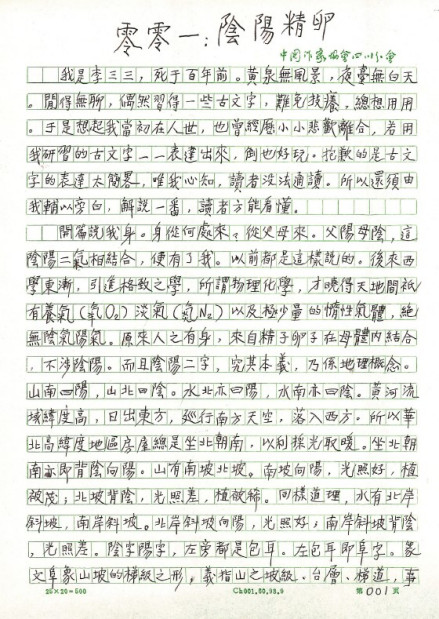 零零一：陰陽精卵
中国作家協會四川分會
我是李三三，死于百年前。黄泉無風景，夜臺無白天
。閒得無聊，偶然習得一些古文字，難免技癢，總想用用
。于是想起我當初在人世，也曾經歷小小悲歡離合，若用
我研習的古文字一一表達出來，倒也好玩。抱歉的是古文
字的表達太簡畧，唯我心知，讀者没法通讀。所以還須由
我輔以旁白，解說一番，讀者方能看懂。
開篇說我身。身從何處來，從父母來。父陽母陰，這
陰陽二氣相結合，便有了我。以前都是這樣說的。後來西
學東漸，引進格致之學，所謂物理化學，才曉得天地間祇
有養氣（氧O₂）淡氣（氮N₂）以及極少量的惰性氣體，絶
無陰氣陽氣。原來人之有身，來自精子卵子在母體内結合
，不涉陰陽。而且陰陽二字，究其本義，乃係地理概念。
山南曰陽，山北曰陰。水北亦曰陽，水南亦曰陰。黄河流
域緯度高，日出東方，巡行南方天空，落入西方。所以華
北高緯度地區房屋總是坐北朝南，以利採光取暖。坐北朝
南亦即背陰向陽。山有南坡北坡。南坡向陽，光照好，植
被茂；北坡背陰，光照差，植被稀。同樣道理，水有北岸
斜坡，南岸斜坡。北岸斜坡向陽，光照好；南岸斜坡背陰
，光照差。陰字陽字，左旁都是包耳。左包耳即阜字。象
文阜象山坡的梯級之形，義指山之坡級、台層、梯道，事
25×20=500
Ch001.80.98.9
第001頁